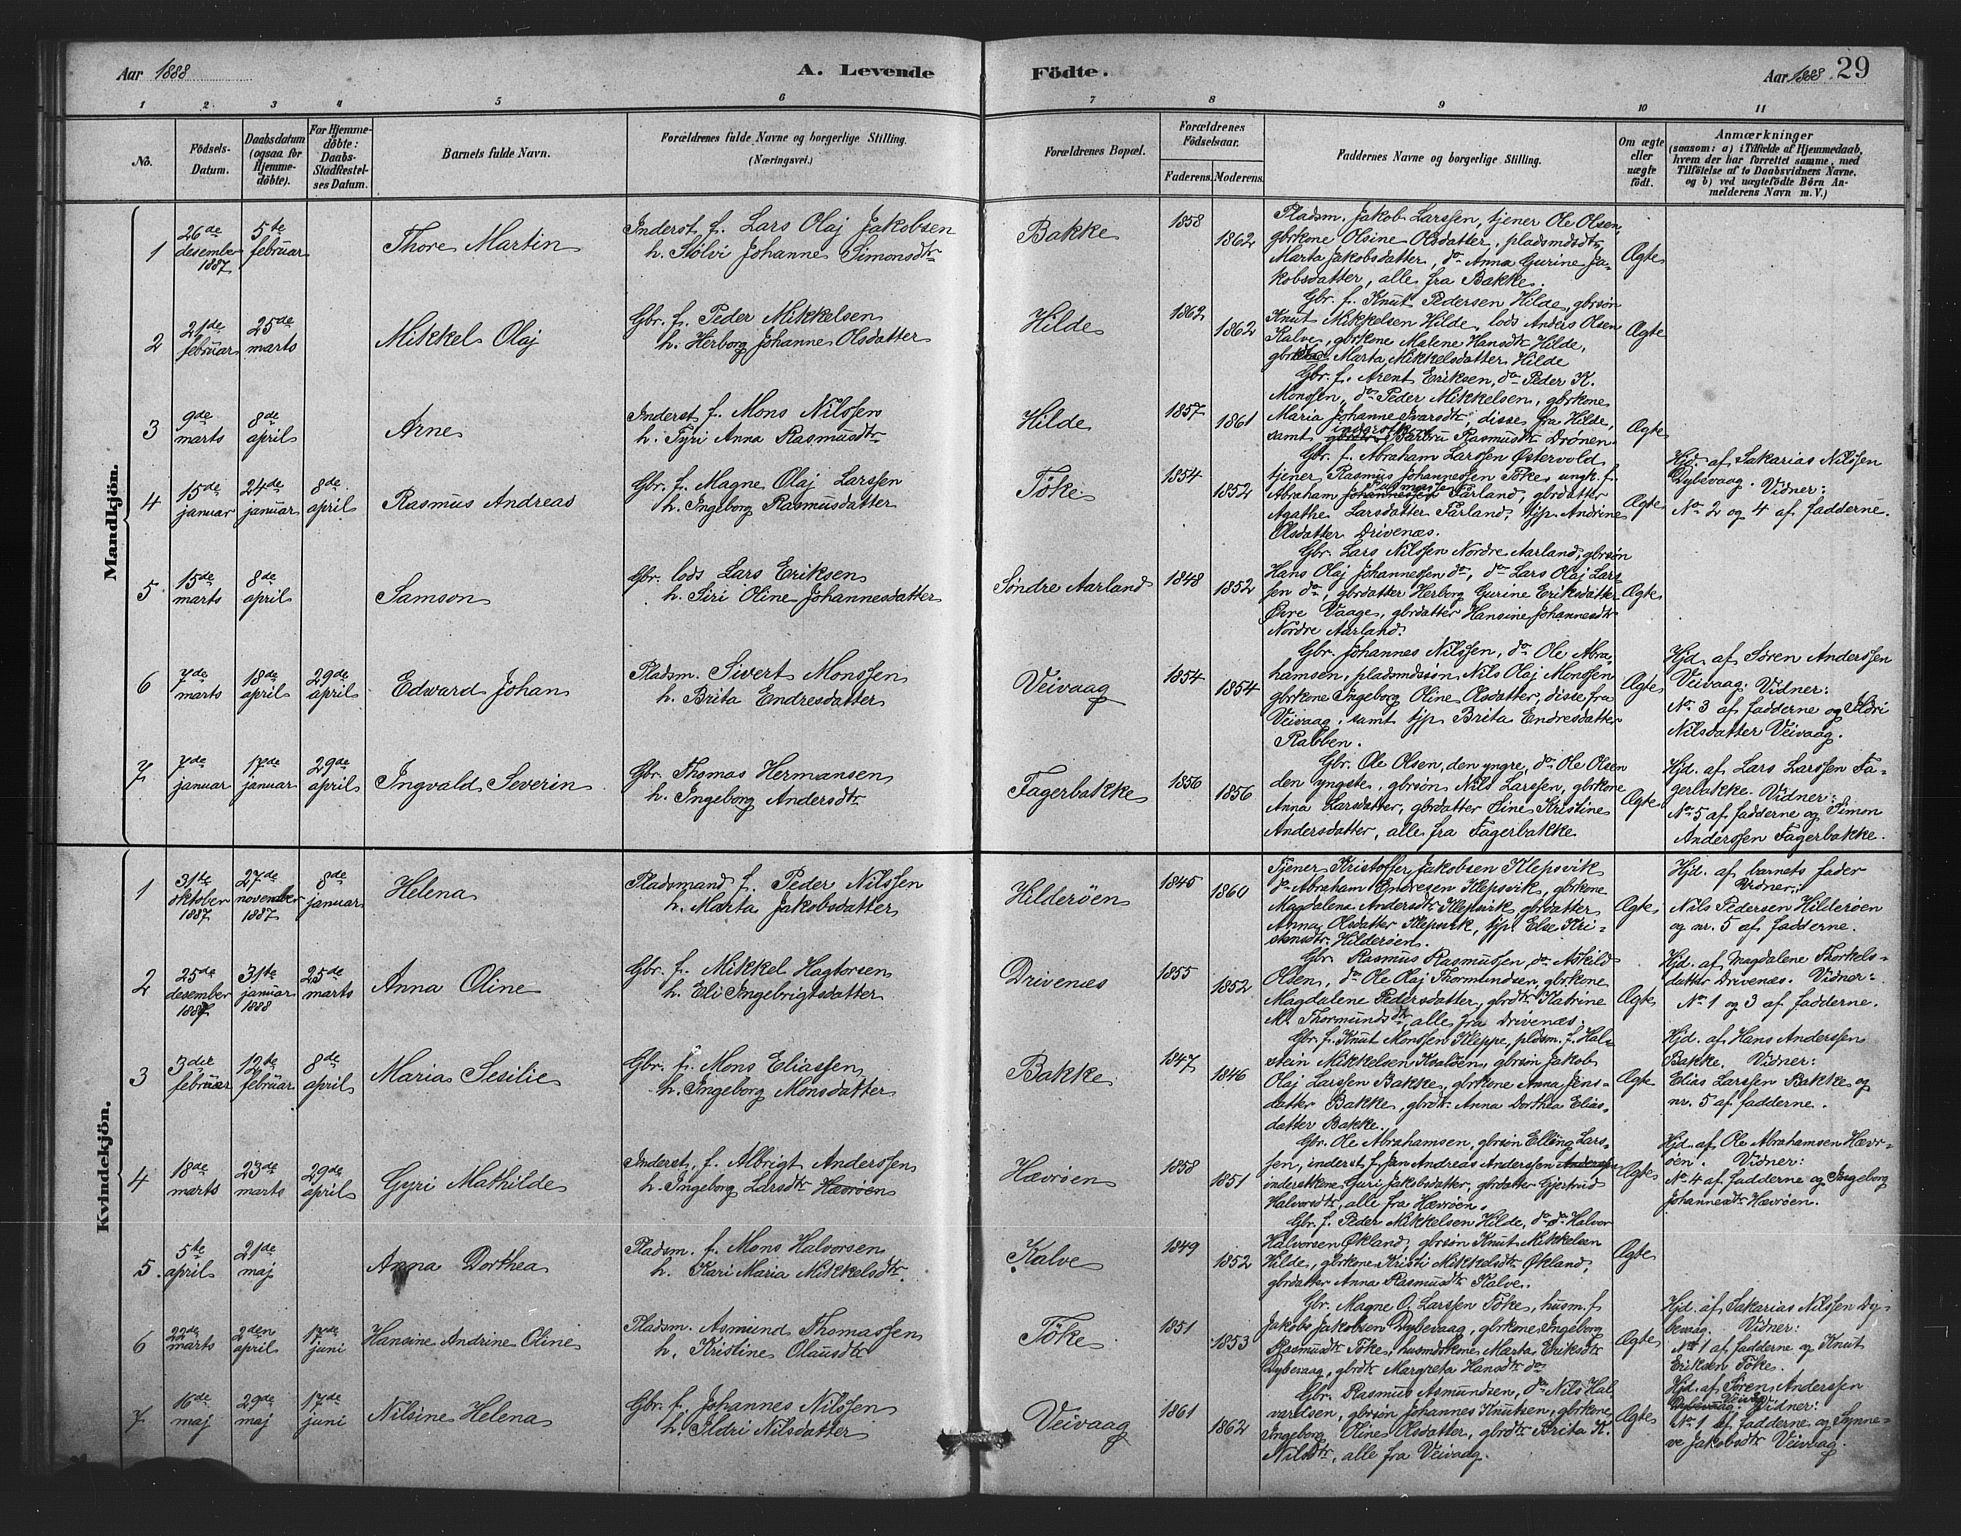 Aar 1888 A. Levende Födte. Aar 1888 29
1 2 3 4 5 6 7 8 9 10 11
No. Födsels-Datum. Daabsdatum (ogsaa for Hjemme-döbte). For Hjemme-döbte: Daabs-Stadfæstel-ses Datum. Barnets fulde Navn. Forældrenes fulde Navne og borgerlige Stilling. (Næringsvei.) Forældrenes Bopæl. Forældrenes Födselsaar. Faderens. Moderens. Faddernes Navne og borgerlige Stilling. Om ægte eller uægte födt. Anmærkninger
(saasom: a) i Tilfælde af Hjemmedaab, hvem der har forrettet samme, med Tilföielse af to Daabsvidners Navne, og b) ved uægtefödte Börn An-melderens Navn m. V.)
Mandkjön.
1 26de desember 1887 5te februar Thore Martin Inderst f. Lars Olaj Jakobsen
h. Stölvi Johanne Simonsdtr Bakke 1858 1862 Pladsm. Jakob Larssen, tjener Ole Olsen,
gbrkone Olsine Olsdatter, pladsmdsdtr
Marta Jakobsdatter, do Anna Gurine Ja-
kobsdatter, alle fra Bakke. Ægte
2 21de februar 25de marts Mikkel Olaj Gbr. f. Peder Mikkelsen
h. Herborg Johanne Olsdatter Hilde 1862 1862 Gbr. f. Knut Pedersen Hilde, gbrsön
Knut Mikkelsen Hilde, lods Anders Olsen
Kalve, gbrkone Malene Hansdtr Hilde,
Marta Mikkelsdatter Hilde Ægte
3 9de marts 8de april Arne Inderst f. Mons Nilssen
h. Tyri Anna Rasmusdtr Hilde 1857 1861 Gbr. f. Arent Eriksen, do Peder K.
Monssen, do Peder Mikkelsen, gbrkone
Maria Johanne Ivarsdtr, disse fra Hilde,
samt Barbru Rasmusdtr Drönen. Ægte
4 15de januar 24de januar 8de april Rasmus Andreas Gbr. f. Magne Olaj Larssen
h. Ingeborg Rasmusdatter Töke 1854 1852 Gbr. f. Abraham Larssen Östervold
tjener Rasmus Johannessen Töke, ungk. f.
Abraham Johannessen Rasmussen Færland, gbrdatter
Agathe Larsdatter Færland, tjp. Andrine
Olsdatter Drivenæs. Ægte Hjd. af Sakarias Nilssen
Dybevaag. Vidner:
No 2 og 4 af fadderne.
5 15de marts 8de april Samson Gbr. lods Lars Eriksen
h. Siri Oline Johannesdatter Söndre Aarland 1848 1852 Gbr. Lars Nilssen Nordre Aarland, gbrsön
Hans Olaj Johannessen do, do Lars Olaj Lars-
sen do, gbrdatter Herborg Gurine Eriksdatter
Övre Vaage, gbrdatter Hansine Johannesdtr
Nordre Aarland. Ægte
6 7de marts 18de april 29de april Edward Johan Pladsm. Sivert Monssen
h. Brita Endresdatter Veivaag 1854 1854 Gbr. Johannes Nilssen, do Ole Abra-
hamsen, pladsmdssön Nils Olaj Monssen
gbrkone Ingeborg Oline Olsdatter, disse fra
Veivaag, samt tjp Brita Endresdatter
Rabben. Ægte Hjd. af Sören Anderssen
Veivaag. Vidner:
No 3 af fadderne og Ildri
Nilsdatter Veivaag.
7 7de januar 17de januar 29de april Ingvald Severin Gbr. Thomas Hermansen
h. Ingeborg Andersdtr Fagerbakke 1856 1856 Gbr. Ole Olsen, den yngre, do Ole Olsen
den yngste, gbrsön Nils Larssen, gbrkone
Anna Larsdatter, gbrdatter Sine Kristine
Andersdatter, alle fra Fagerbakke. Ægte Hjd. af Lars Larssen Fa-
gerbakke. Vidner:
No 5 af fadderne og Simon
Anderssen Fagerbakke.
Kvindekjön.
1 31te oktober 1887 27de november 1887 8de januar Helena Pladsmand f. Peder Nilssen
h. Marta Jakobsdatter Hilderöen 1845 1860 Tjener Kristoffer Jakobsen Klepsvik
do Abraham Endresen Klepsvik, gbrkone
Magdalena Andersdtr Klepsvik gbrdatter
Anna Olsdatter Klepsvik, tjp. Else Kri-
stensdtr Hilderöen. Ægte Hjd. af barnets fader
Vidner:
Nils Pedersen Hilderöen
og nr. 5 af fadderne.
2 25de desember 1887 31te januar 1888 25de marts Anna Oline Gbr. f. Mikkel Hagtorsen
h. Eli Ingebrigtsdatter Drivenæs 1855 1852 Gbr. Rasmus Rasmussen, do Askild
Olsen, do Ole Olaj Thormundsen, gbrkone
Magdalene Pedersdatter, gbrdtr Katrine
M. Thormundsdtr, alle fra Drivenæs. Ægte Hjd. af Magdalene Thorkels-
datter Drivenæs. Vidner:
No 1 og 3 af fadderne.
3 3die februar 12te februar 8de april Maria Sesilie Gbr. f. Mons Eliassen
h. Ingeborg Monsdatter Bakke 1847 1846 Gbr. f. Knut Monssen Kleppe, pldsm. f. Hal-
stein Mikkelsen Kvalöen, gbrsön Jakob
Olaj Larssen Bakke, gbrkone Anna Jens-
datter Bakke, gbrdtr Anna Dorthea Elias-
datter Bakke. Ægte Hjd. af Hans Anderssen
Bakke. Vidner:
Elias Larssen Bakke og
nr. 5 af fadderne.
4 18de marts 23de marts 29de april Gyri Mathilde Inderst. f. Albrigt Anderssen
h. Ingeborg Larsdtr Hævröen Hævröen 1858 1851 Gbr. Ole Abrahamsen, gbrsön Elling Lars-
sen, inderst f. Jan Andreas Anderssen Anderssen
inderstkone Guri Jakobsdatter, gbrdatter Gjertrud
Halvorsdtr, alle fra Hævröen. Ægte Hjd. af Ole Abrahamsen Hævr-
öen. Vidner:
No 4 af fadderne og Ingeborg
Johannesdtr Hævröen.
5 5te april 21de maj Anna Dorthea Pladsm. f. Mons Halvorsen
h. Kari Maria Mikkelsdtr. Kalve 1849 1852 Gbr. f. Peder Mikkelsen Hilde, do do Halvor
Halvorsen Økland, gbrsön Knut Mikkelsen
Hilde, gbrkone Kristi Mikkelsdtr Økland,
gbrdatter Anna Rasmusdtr Kalve. Ægte
6 22de marts 2den april 17de juni Hansine Andrine Oline Pladsm. Asmund Thomassen
h. Kristine Olausdtr Töke 1851 1853 Gbr. Magne O. Larssen Töke, husm. f.
Jakob Jakobsen Dybevaag, gbrkone Ingeborg
Rasmusdtr Töke, husmdkone Marta Eriksdtr
Dybevaag, gbrdtr Margreta Hansdtr do Ægte Hjd. af Sakarias Nilssen Dy-
bevaag. Vidner:
No 1 af fadderne og Knut
Eriksen Töke.
7 16de maj 29de maj 17de juni Nilsine Helena Gbr. f. Johannes Nilssen
h. Ildri Nilsdatter Veivaag 1861 1862 Gbr. Rasmus Asmundsen, do Nils Hal-
vardsen, gbrsön Johannes Knutsen, gbrkone
Ingeborg Oline Olsdatter, gbrdtr Brita K.
Nilsdtr, alle fra Veivaag. Ægte Hjd. af Sören Anderssen
Dybevaag Veivaag. Vidner:
No 1 af fadderne og Synne-
ve Jakobsdtr Veivaag.